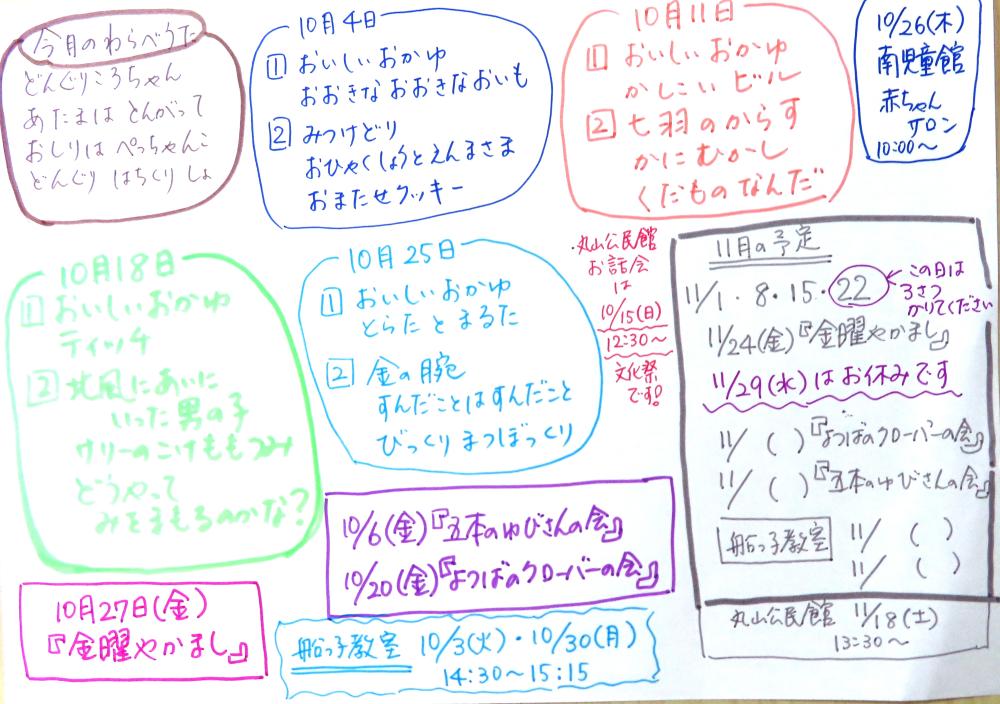 今月のわらべうた
どんぐりころちゃん
あたまは とんがって
おしりは ぺっちゃんこ
どんぐり はちくり しょ
10月4日
1 おいしいおかゆ
おおきな おおきな おいも
2 みつけどり
おひゃくしょうとえんまさま
おまたせクッキー
10月11日
1 おいしいおかゆ
かしこい ビル
2 七羽のからす
かにむかし
くだもの なんだ
10/26(木)
南児童館
赤ちゃん
サロン
10:00～
10月18日
1 おいしいおかゆ
ティッチ
2 北風にあいに
いった男の子
サリーのこけももつみ
どうやって
みをまもるのかな?
10月25日
1 おいしいおかゆ
とらたとまるた
2 金の腕
すんだことはすんだこと
びっくりまつぼっくり
・丸山公民館
お話会
は
10/15(日)
12:30～
文化祭
です!
11月の予定
11/1・8・15・22
この日は
3さつ
かりてください
11/24(金)『金曜やかまし』
11/29(水)はお休みです
11/ ( )『よつばのクローバーの会』
11/ ( )『五本のゆびさんの会』
船っ子教室 11/ ( )
11/ ( )
丸山公民館 11/18(土)
13:30～
10/6(金)『五本のゆびさんの会』
10/20(金)『よつばのクローバーの会』
10月27日(金)
『金曜やかまし』
船っ子教室 10/3(火)・10/30(月)
14:30～15:15